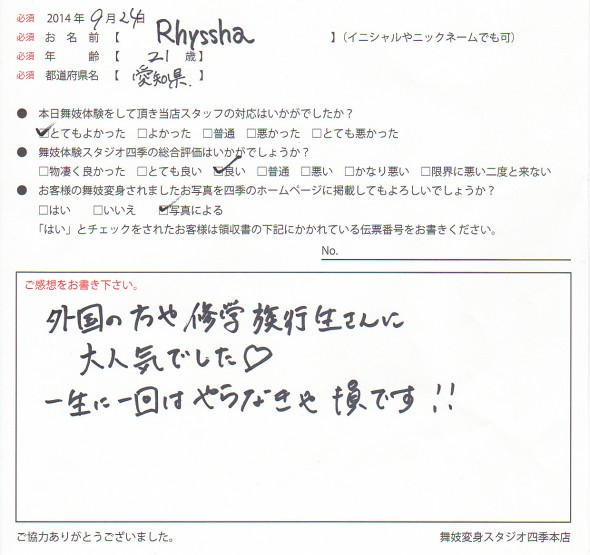 必須 2014年 9月24日
必須 お名前【 Rhyssha 】（イニシャルやニックネームでも可）
必須 年齢【 21 歳】
必須 都道府県名【 愛知県. 】
● 本日舞妓体験をして頂き当店スタッフの対応はいかがでしたか？
☑とてもよかった □よかった □普通 □悪かった □とても悪かった
● 舞妓体験スタジオ四季の総合評価はいかがでしょうか？
□物凄く良かった □とても良い ☑良い □普通 □悪い □かなり悪い □限界に悪い二度と来ない
● お客様の舞妓変身されましたお写真を四季のホームページに掲載してもよろしいでしょうか？
□はい □いいえ ☑写真による
「はい」とチェックをされたお客様は領収書の下記にかかれている伝票番号をお書きください。
No.
ご感想をお書き下さい。
外国の方や修学旅行生さんに
大人気でした♡
一生に一回はやらなきゃ損です!!
ご協力ありがとうございました。
舞妓変身スタジオ四季本店